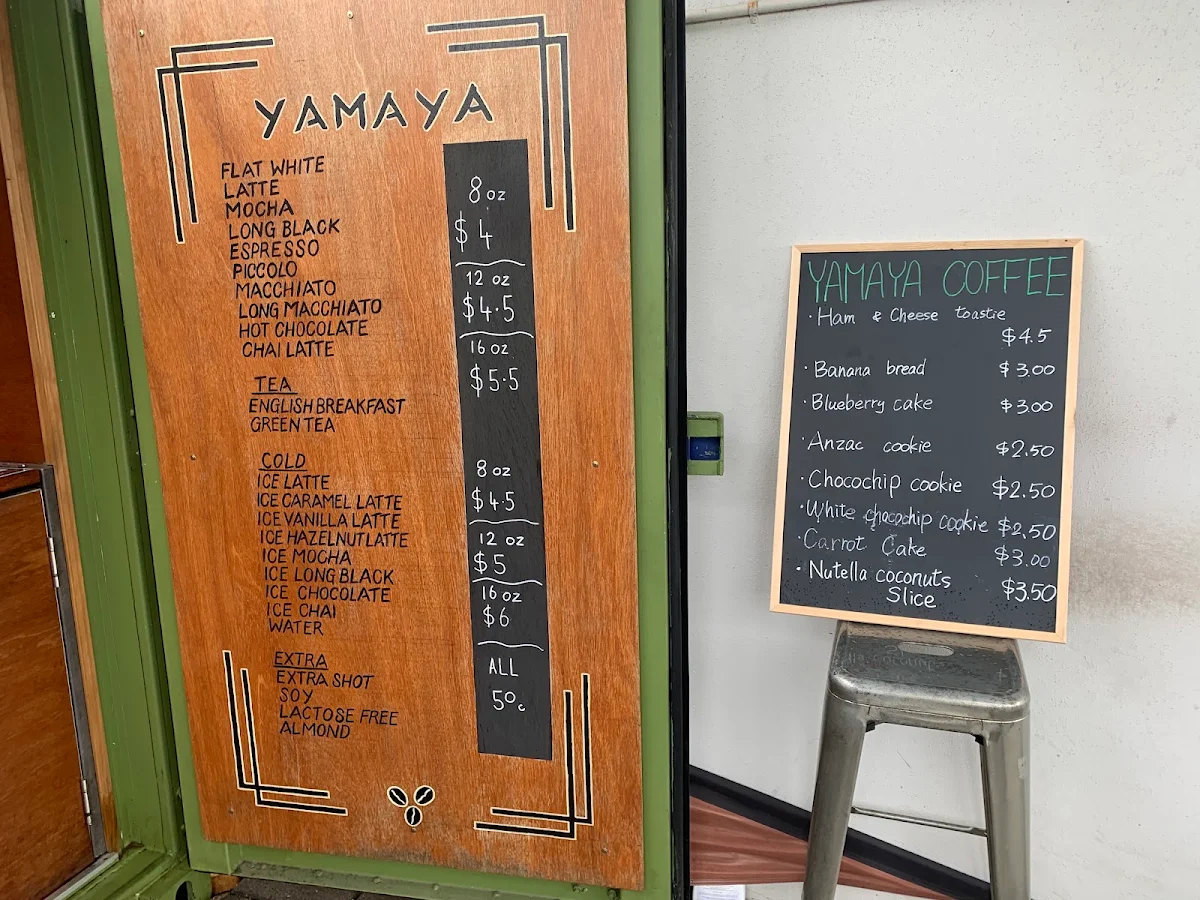 YAMAYA
FLAT WHITE
LATTE
MOCHA
LONG BLACK
ESPRESSO
PICCOLO
MACCHIATO
LONG MACCHIATO
HOT CHOCOLATE
CHAI LATTE
TEA
ENGLISH BREAKFAST
GREEN TEA
COLD
ICE LATTE
ICE CARAMEL LATTE
ICE VANILLA LATTE
ICE HAZELNUT LATTE
ICE MOCHA
ICE LONG BLACK
ICE CHOCOLATE
ICE CHAI
WATER
EXTRA
EXTRA SHOT
SOY
LACTOSE FREE
ALMOND
8 oz
$4
12 oz
$4.5
16 oz
$5.5
8 oz
$4.5
12 oz
$5
16 oz
$6
ALL
50c
YAMAYA COFFEE
· Ham & Cheese toastie
$4.5
· Banana bread $3.00
· Blueberry cake $3.00
· Anzac cookie $2.50
· Chocochip cookie $2.50
· White chocochip cookie $2.50
· Carrot Cake $3.00
· Nutella coconuts $3.50
Slice